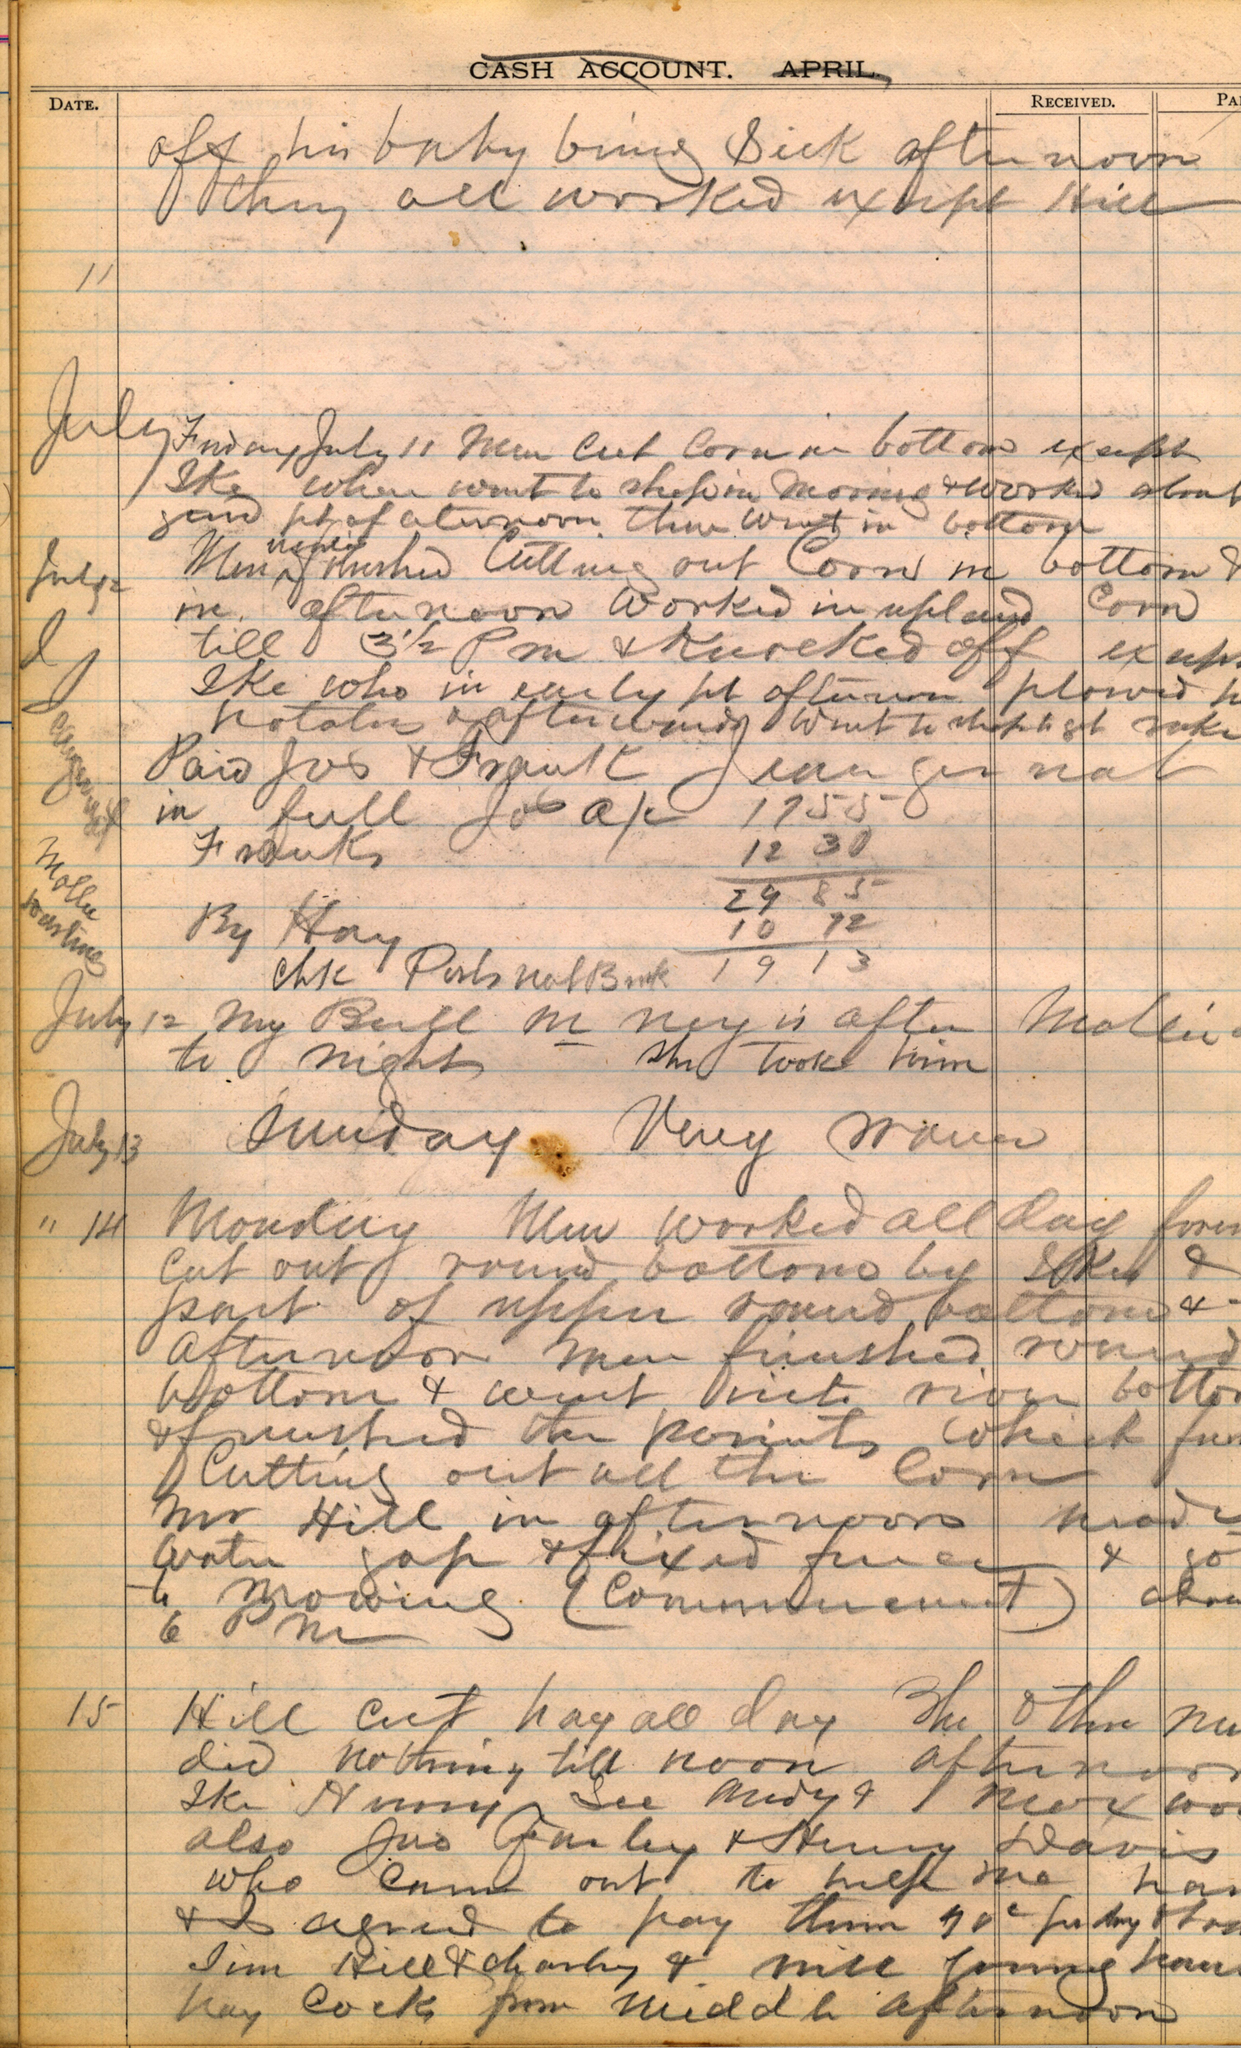 CASH ACCOUNT. APRIL.
DATE. RECEIVED. PAI
off his baby being Sick afternoon
they all worked except Hill
11
July Friday July 11 Men Cut Corn in bottom except
Ike when went to shop in morning & worked about
yard pt of aternoon then went in bottom
July 12 Men nearly finished Cutting out Corn in bottom &
in afternoon Worked in upland Corn
till 3 1/2 Pm & Knocked off except
Ike who in early pt afternoon plowed
potatoes & afterwards Went to shop to get rake
Paid Jos & Frank
in full Jos a/c 17 55
Franks 12 30
29 85
By Hay 10 72
Chk Perls Nat Bank 19 13
Mollie
July 12 My Bull is after Mollie
to night she took him
July 13 Sunday Very warm
" 14 Monday Men worked all day
Cut out round bottom by Ikes &
part of upper round bottom &
afternoon men finished round
bottom & went into river bottom
& finished the points which
Cutting out all the Corn
Mr Hill in afternoon made
Water gap & fixed fence & go
to Mowing (Commencement)
6 Pm
15 Hill Cut hay all day The Other
did nothing till noon afternoon
Ike Henry Lee Andy &
also Jno Farley & Henry Davis
who Came out to help me
& I agreed to pay them 90c per day
Jim Hill & Charley & Mill Young
hay Cocks from Middle Afternoon